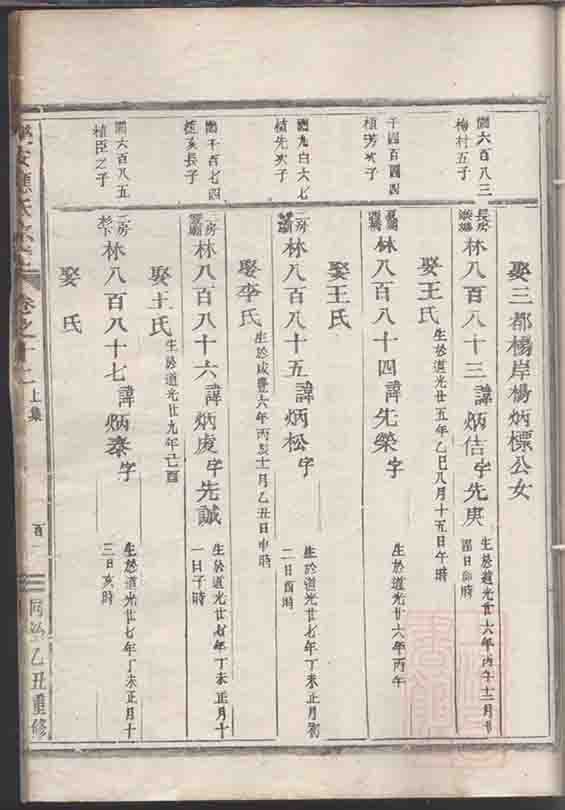 娶三都楊岸楊炳標公女
閏六百八三
梅村五子
長房
林八百八十三諱炳佶字先庚
生於道光廿六年丙午十二月廿
四日卯時
娶王氏
生於道光廿五年乙巳八月十五日午時
千四百四四
植芳次子
林八百八十四諱先榮字
生於道光廿六年丙午
娶王氏
閏九百六七
植先次子
二房
林八百八十五諱炳松字
生於道光廿七年丁未正月初
二日酉時
娶李氏
生於咸豐六年丙辰十一月乙丑日申時
閏千百七四
長子
二房
林八百八十六諱炳虔字先誠
生於道光廿七年丁未正月十
一日子時
娶王氏
生於道光廿九年己酉
閏六百八五
植臣之子
二房
杉下
林八百八十七諱炳泰字
生於道光廿七年丁未正月十
三日亥時
娶氏
應氏宗譜
卷之十二
上集
百一
同治乙丑重修